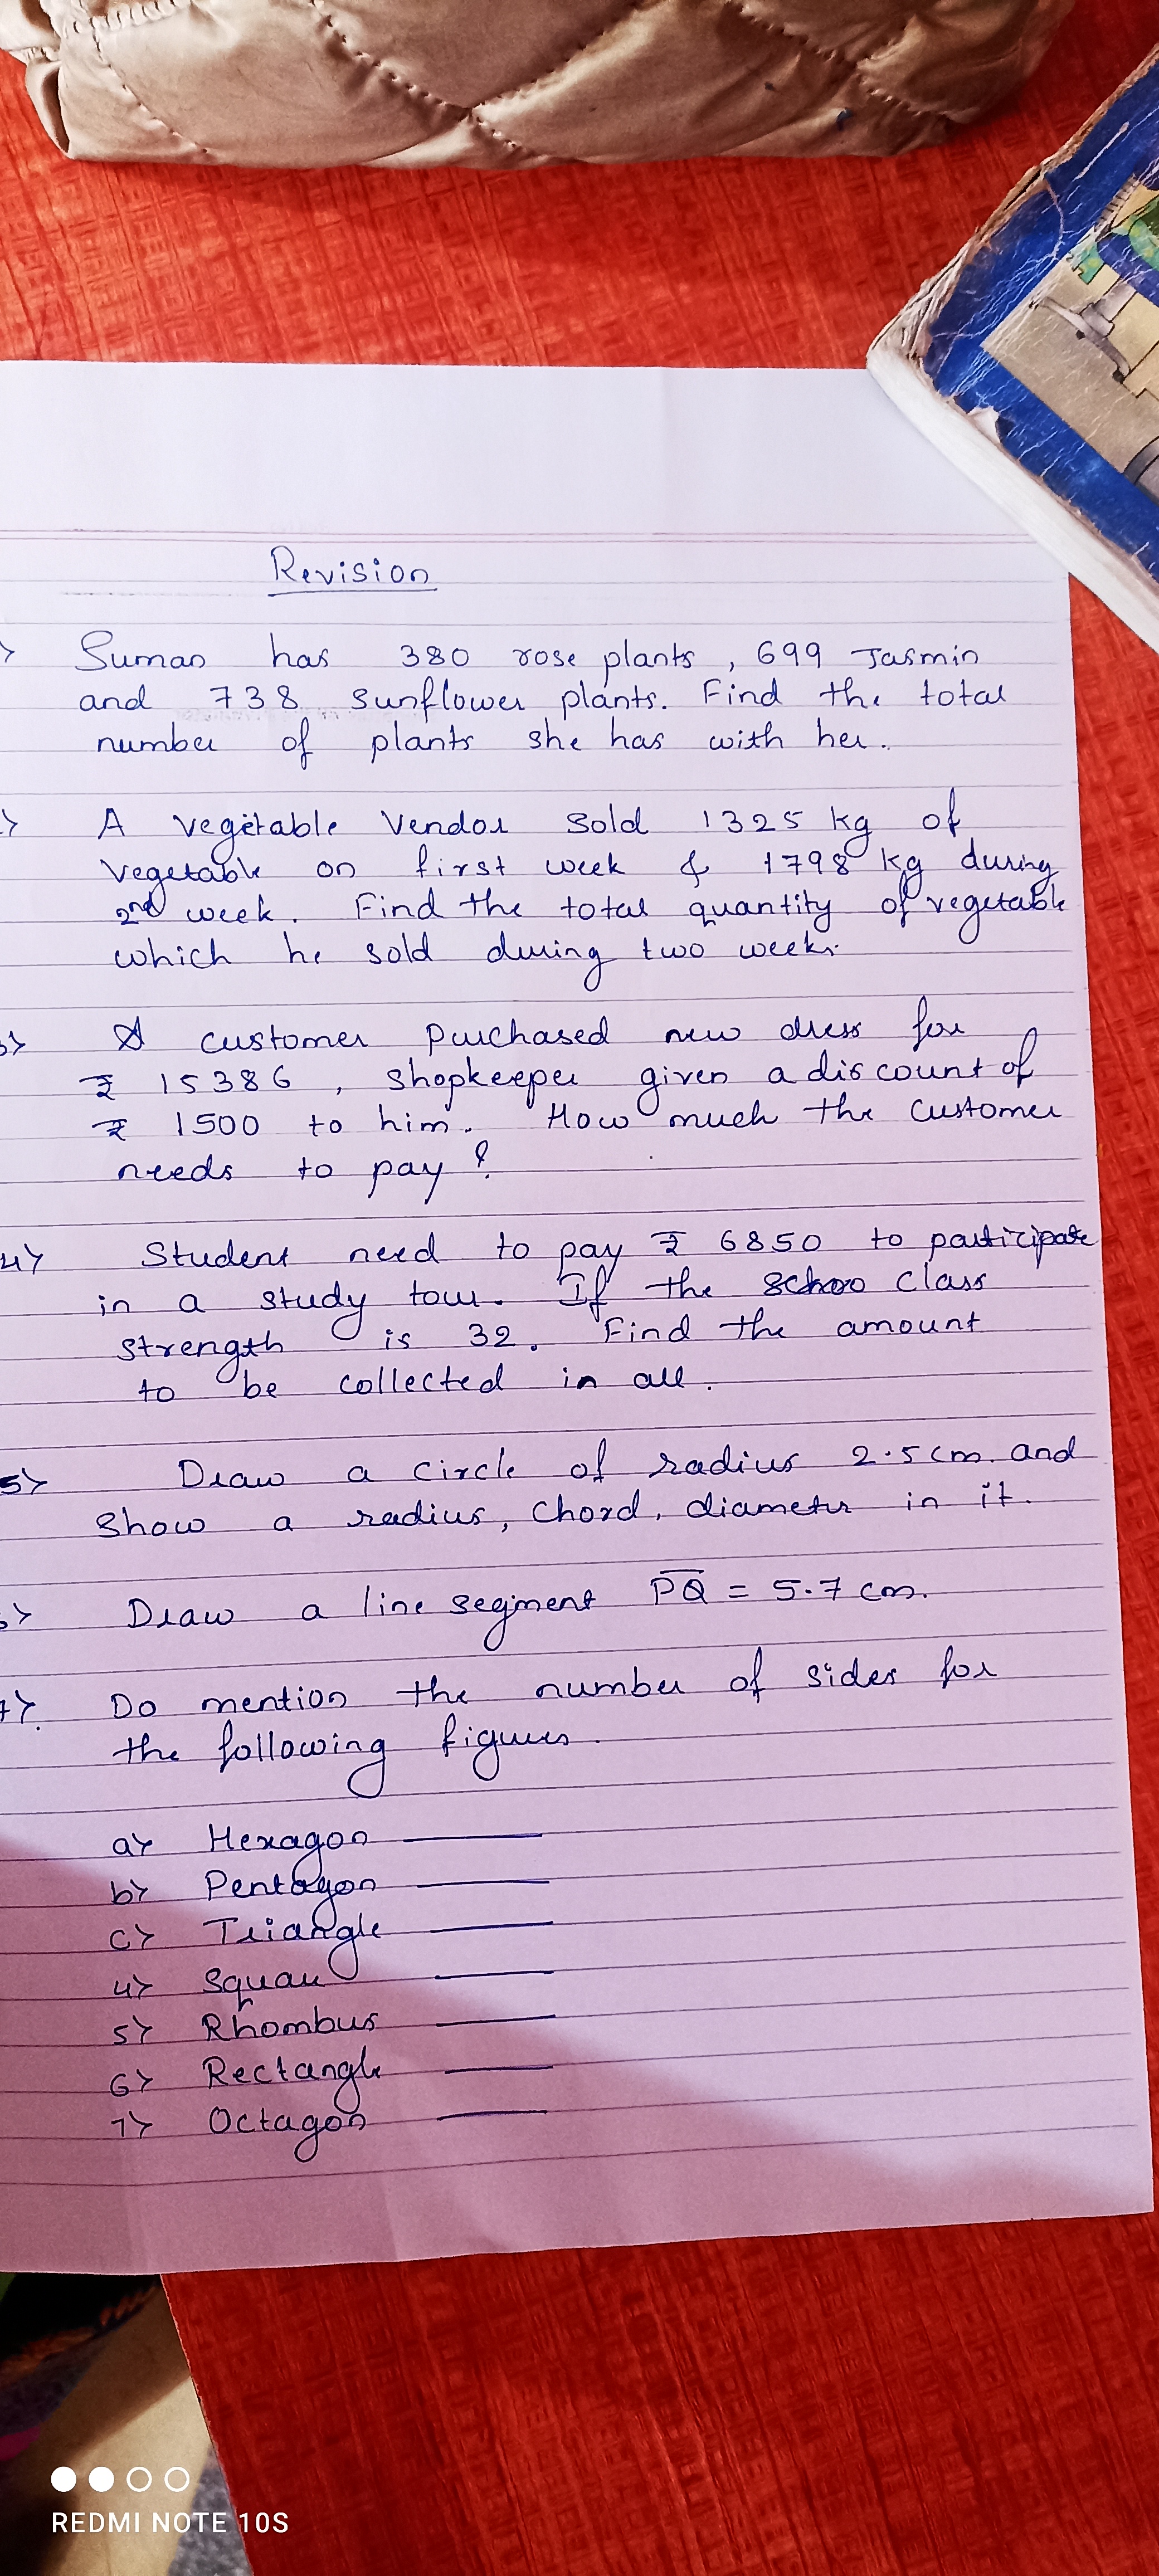 Revision
> Suman has 380 rose plants, 699 Jasmin
and 738 sunflower plants. Find the total
number of plants she has with her.
> A vegetable vendor sold 1325 kg of
vegetable on first week & 1798 kg during
2nd week. Find the total quantity of vegetable
which he sold during two weeks.
3> A customer purchased new dress for
₹ 15386, shopkeeper given a discount of
₹ 1500 to him. How much the customer
needs to pay?
4> Student need to pay ₹ 6850 to participate
in a study tour. If the class
strength is 32. Find the amount
to be collected in all.
5> Draw a circle of radius 2.5 cm and
show a radius, chord, diameter in it.
> Draw a line segment P̅Q̅ = 5.7 cm.
7>. Do mention the number of sides for
the following figures.
a> Hexagon ———
b> Pentagon ———
c> Triangle ———
4> Square ———
5> Rhombus ———
6> Rectangle ———
7> Octagon ———
REDMI NOTE 10S